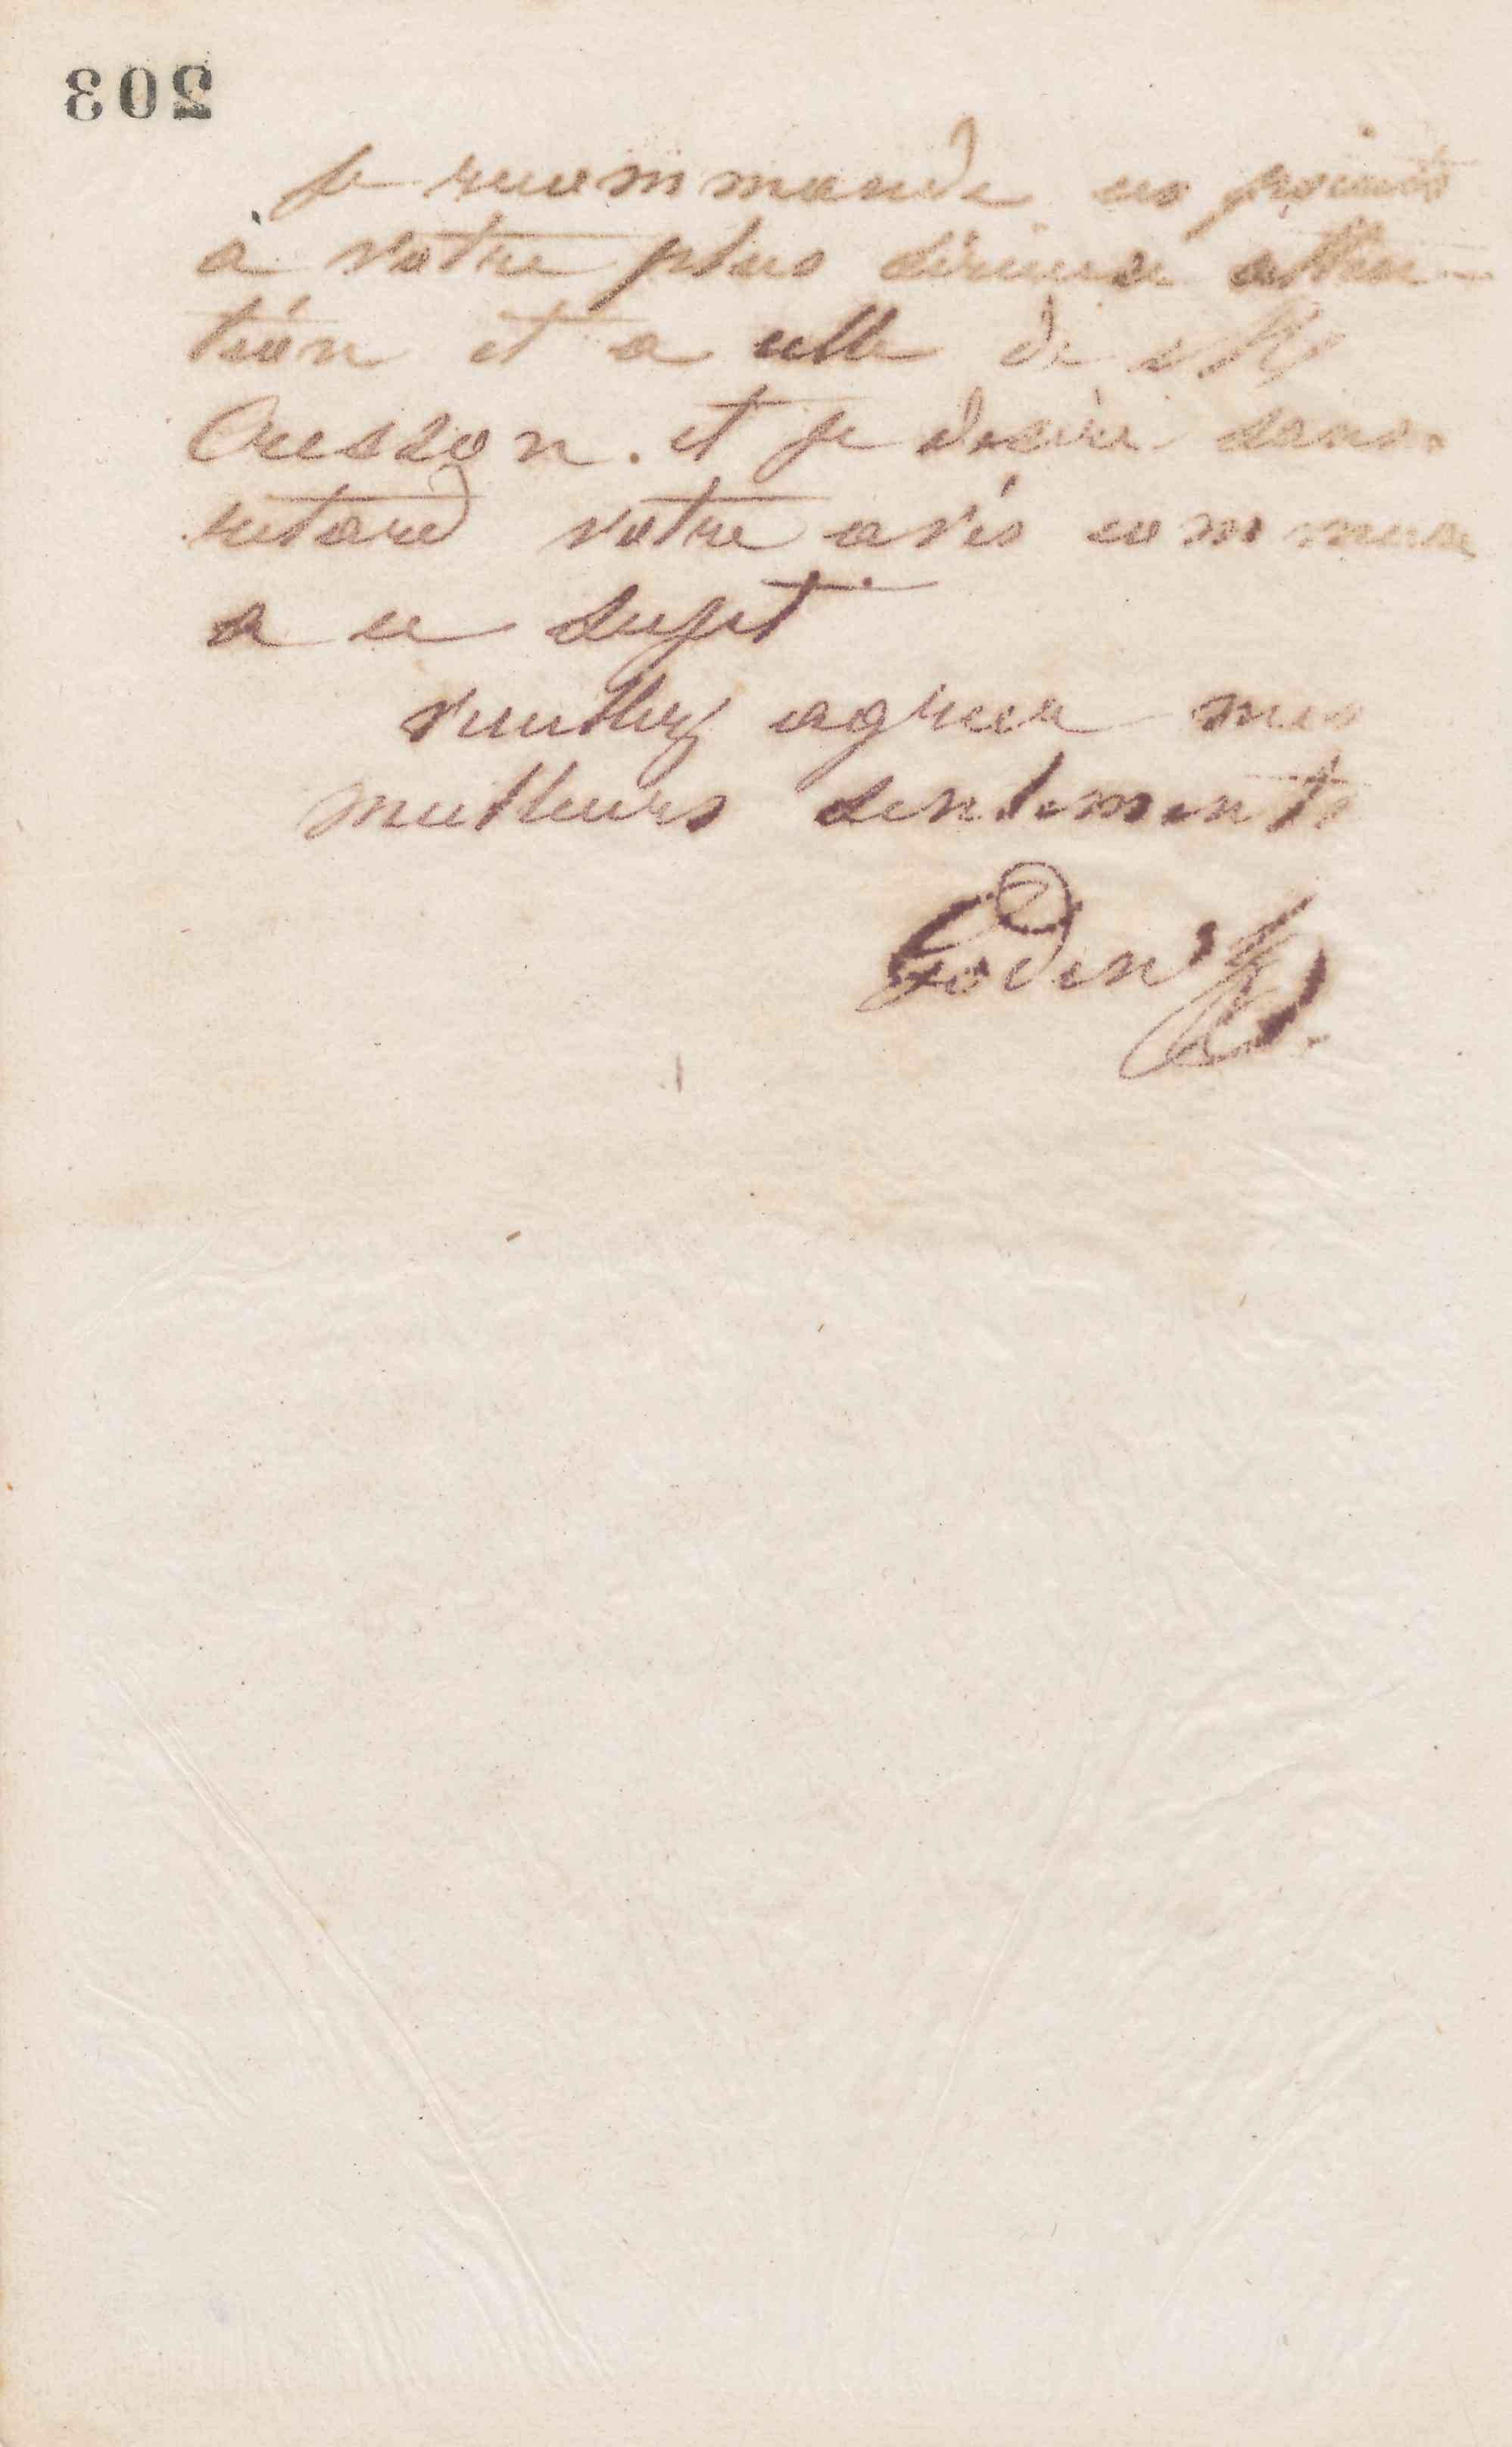 203
je recommande ces points
a votre plus sérieuse atten-
tion et a celle de Mr
Cresson. et je desire sans
retard votre avis commun
a ce sujet
veuillez agreer mes
meilleurs sentiments
Godin